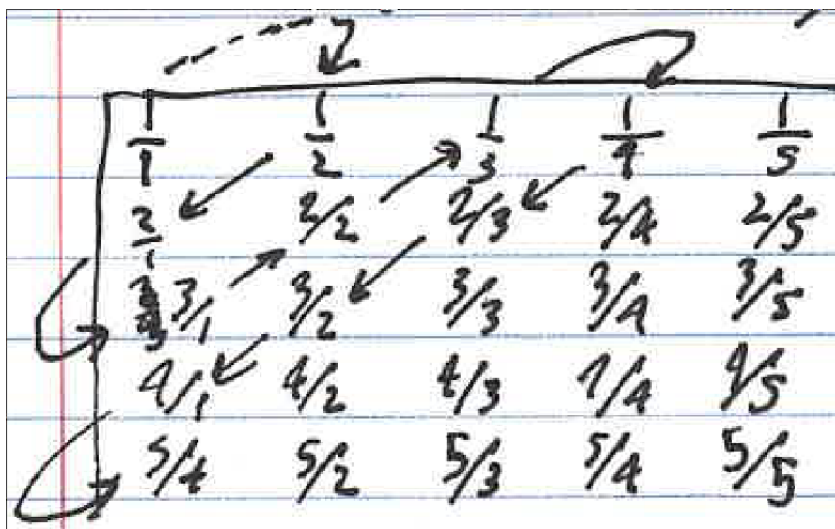 1/1 1/2 1/3 1/4 1/5
2/1 2/2 2/3 2/4 2/5
3/1 3/2 3/3 3/4 3/5
4/1 4/2 4/3 4/4 4/5
5/4 5/2 5/3 5/4 5/5